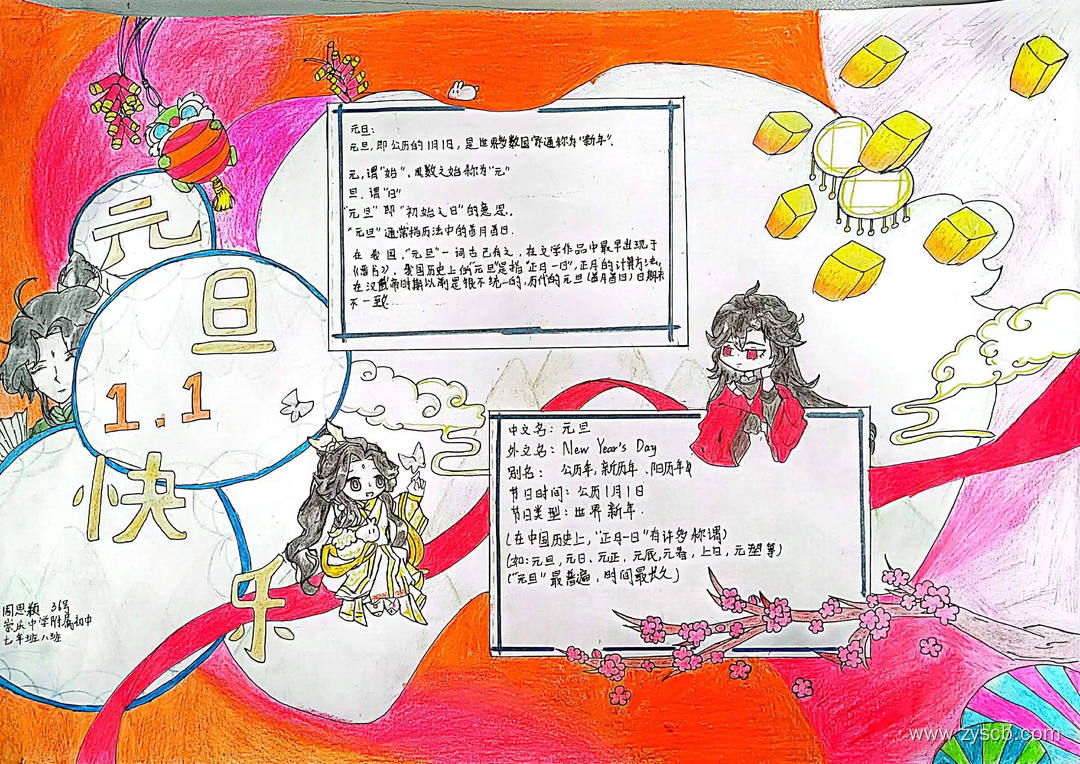 元旦
1.1
快
乐
元旦:
元旦,即公历的1月1日,是世界多数国家通称为"新年".
元,谓"始",凡数之始称为"元"
旦,谓"日"
"元旦"即"初始之日"的意思.
"元旦"通常指历法中的首月首日.
在我国,"元旦"一词古已有之,在文学作品中最早出现于
《晋书》,我国历史上的"元旦"是指"正月一日",正月的计算方法,
在汉武帝时期以前是很不统一的,历代的元旦(首月首日)日期未
不一致
中文名:元旦
外文名:New Year's Day
别名: 公历年,新历年、阳历年
节日时间:公历1月1日
节日类型:世界新年.
(在中国历史上,"正月一日"有许多称谓)
(如:元旦,元日、元正、元辰,元春,上日,元朔等)
("元旦"最普遍,时间最长久)
周思颖 36号
崇庆中学附属初中
七年班八班
www.zyscb.com